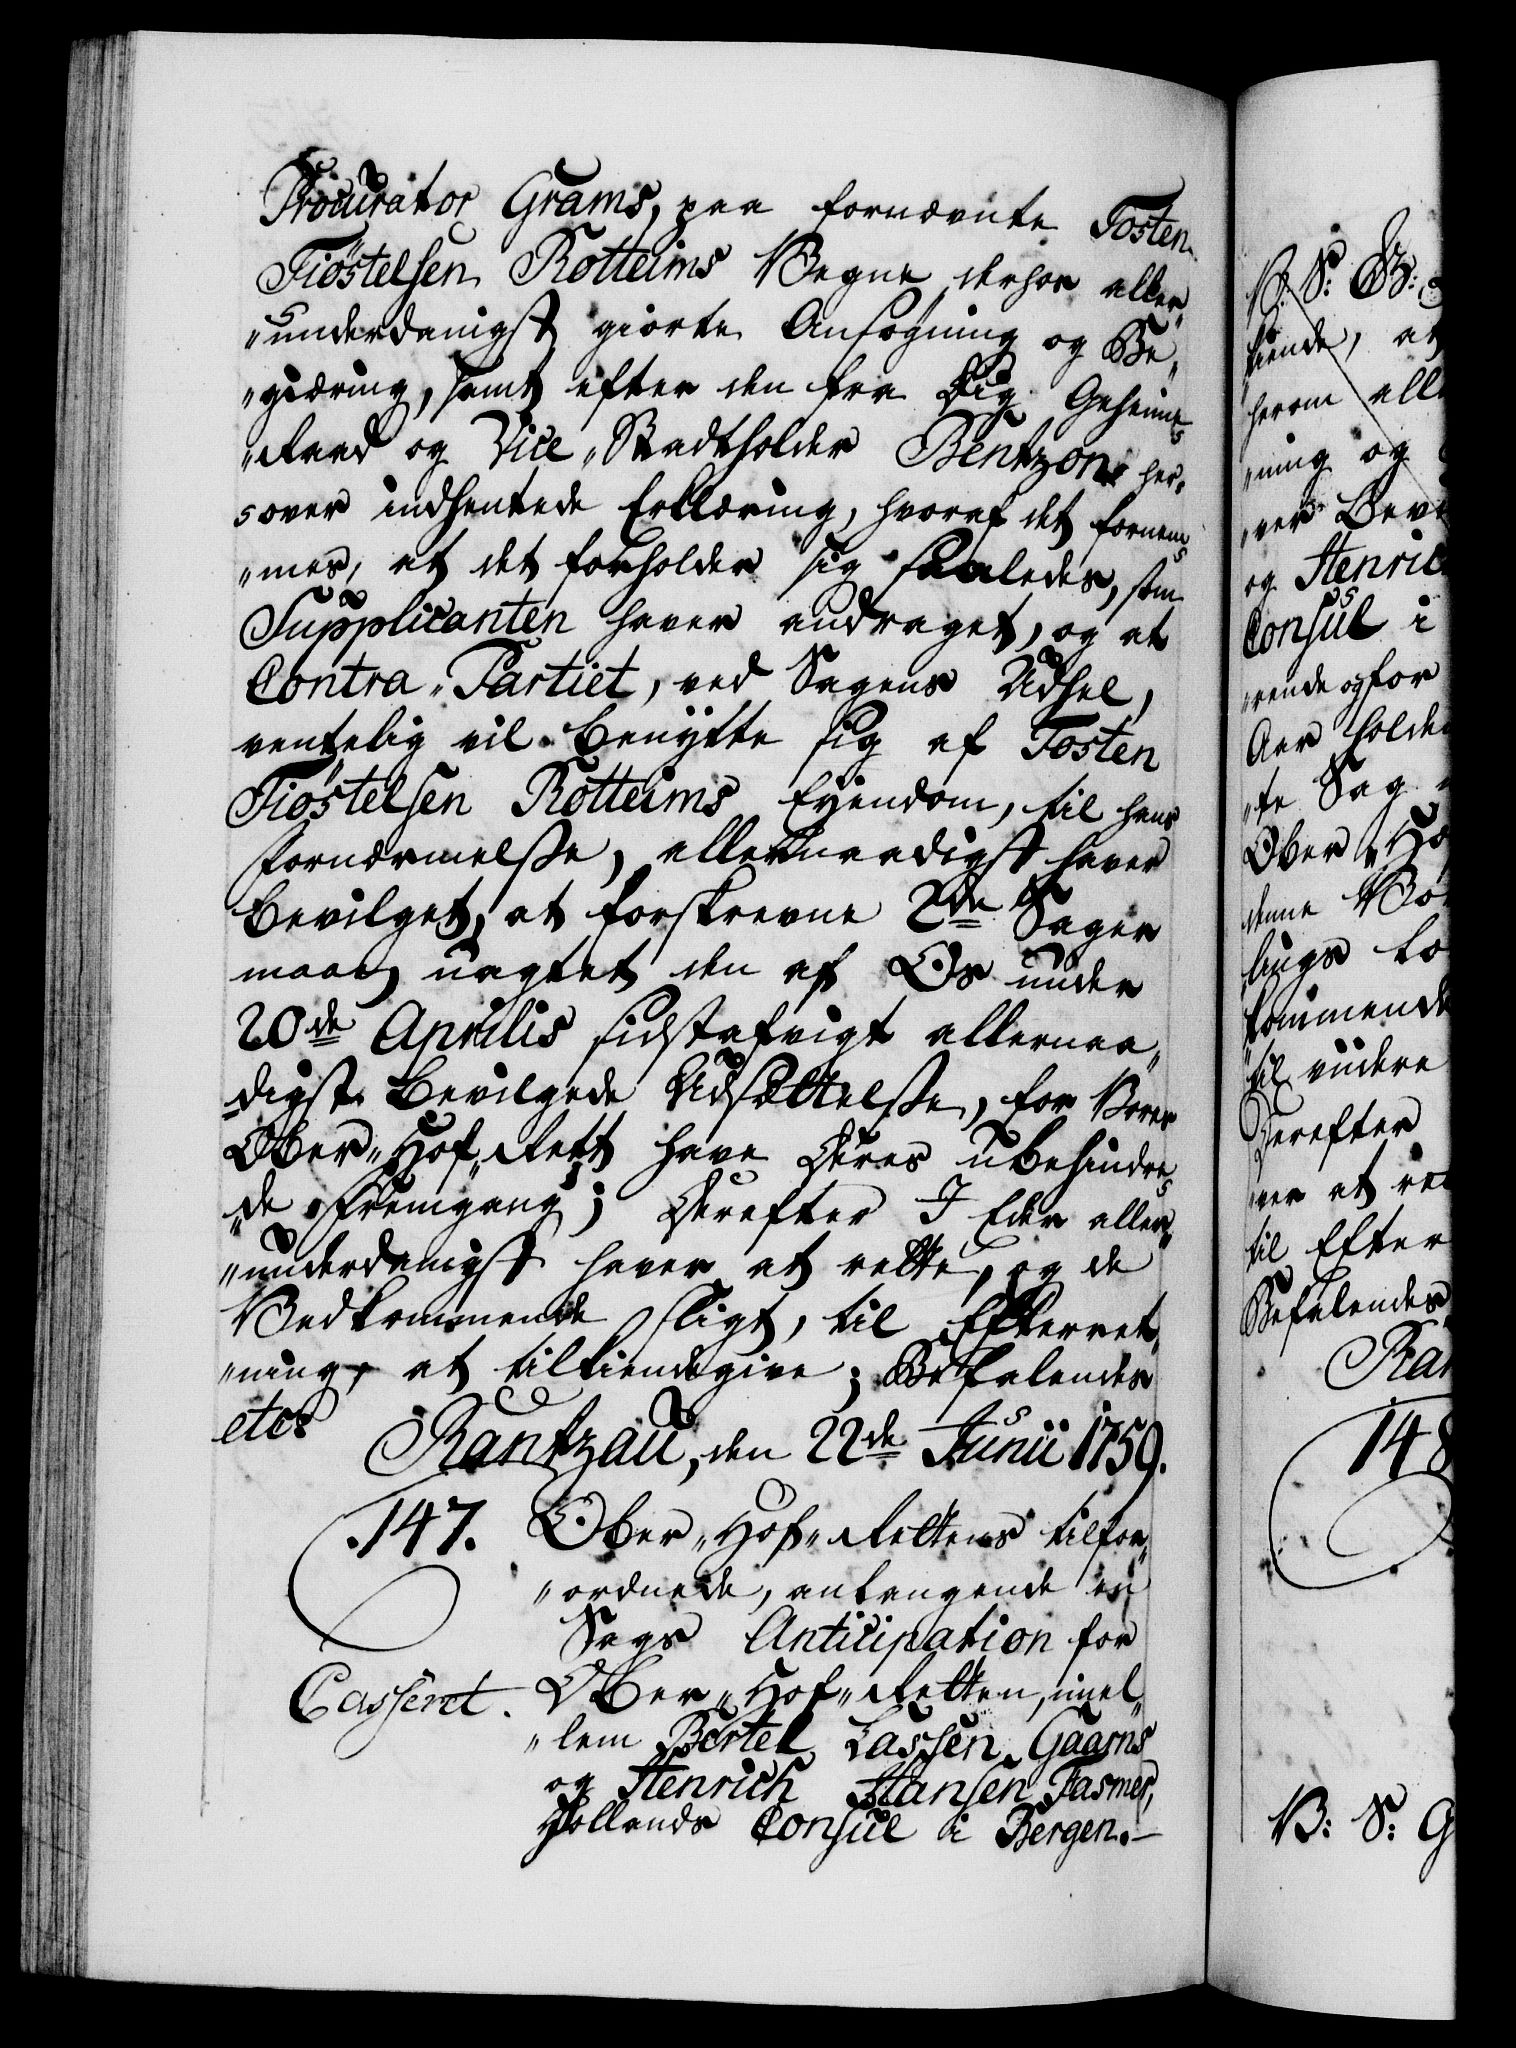 Procurator Grams, paa fornævnte Tosten
Tiöstelsen Rotteims Vegne derhos aller„
„underdanigst giorte Ansøgning og Be„
„giæring, samt efter den fra Dig Geheime„
„Raad og Vice„Stadtholder Bentzon her„
„over indhentede Erklæring, hvoraf det fornem„
„mes, at det forholder sig saaledes, som
Supplicanten haver andraget, og at
Contra„Partiet, ved Sagens Udhel,
ventelig vil benytte sig af Tosten
Tiöstelsen Rotteims Eyendom, til hans
Fornærmelsse, allernaadigst haver
bevilget, at forskrevne 2de Sager
maae, uagtet den af Os under
20de Aprilis sidstafvigt allernaa„
„digst bevilgede Udsættelsse, for Vores
Ober„Hof„Rett have Deres ubehindre„
„de Fremgang; Derefter I Eder aller„
„underdanigst haver at rette, og de
Vedkommende sligt, til Efterret„
„ning, at tilkiendegive; Befalendes
etc:
Rantzau, den 22de Junii 1759.
147. Ober„Hof„Rettens tilfor„
„ordnede, anlangende en
Sags Anticipation for
Casseret. Ober„Hof„Retten, imel„
„lem Bertel Lassen Gaarns
og Henrich Hansen Fasmer,
Hollands Consul i Bergen.
V: S: G:
tiende, at
herom all
„ning og
„ver Bev
og Henric
Consul i
„rende og for
Aar holde
„te Sag
Ober„Ho
denne
lings
kommende
til viidere
Derefter
„ver at re
til Efter
Befalendes
Ran
148
V: S: G